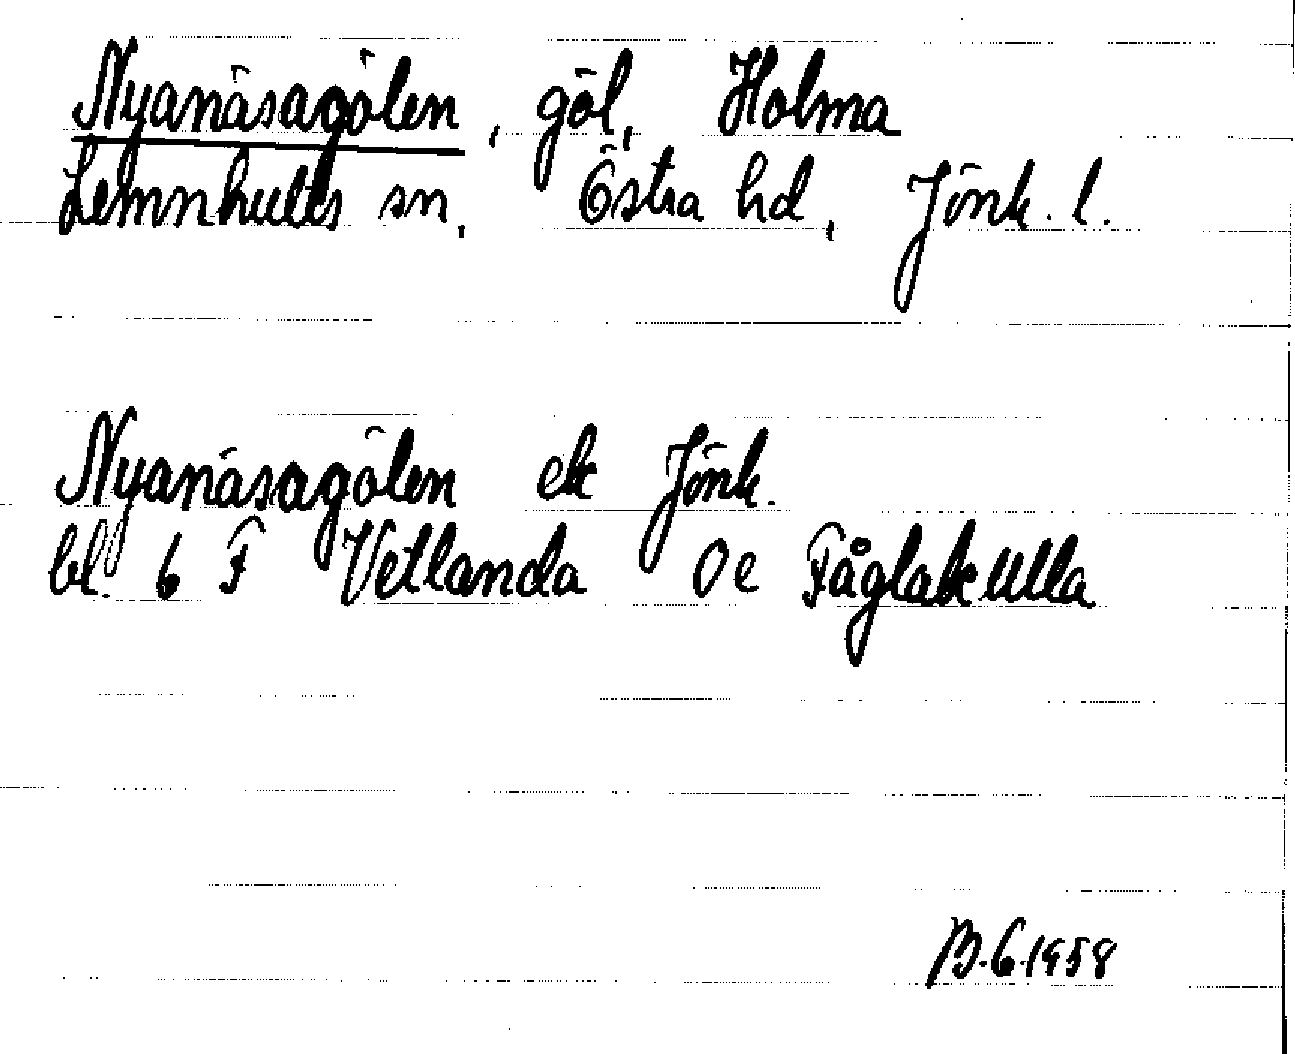 Nyanäsagölen, göl, Holma
Lemnhults sn, Östra hd, Jönk. l.
Nyanäsagölen ek Jönk.
bl. 6 F Vetlanda 0e Fåglakulla
B.G. 1958